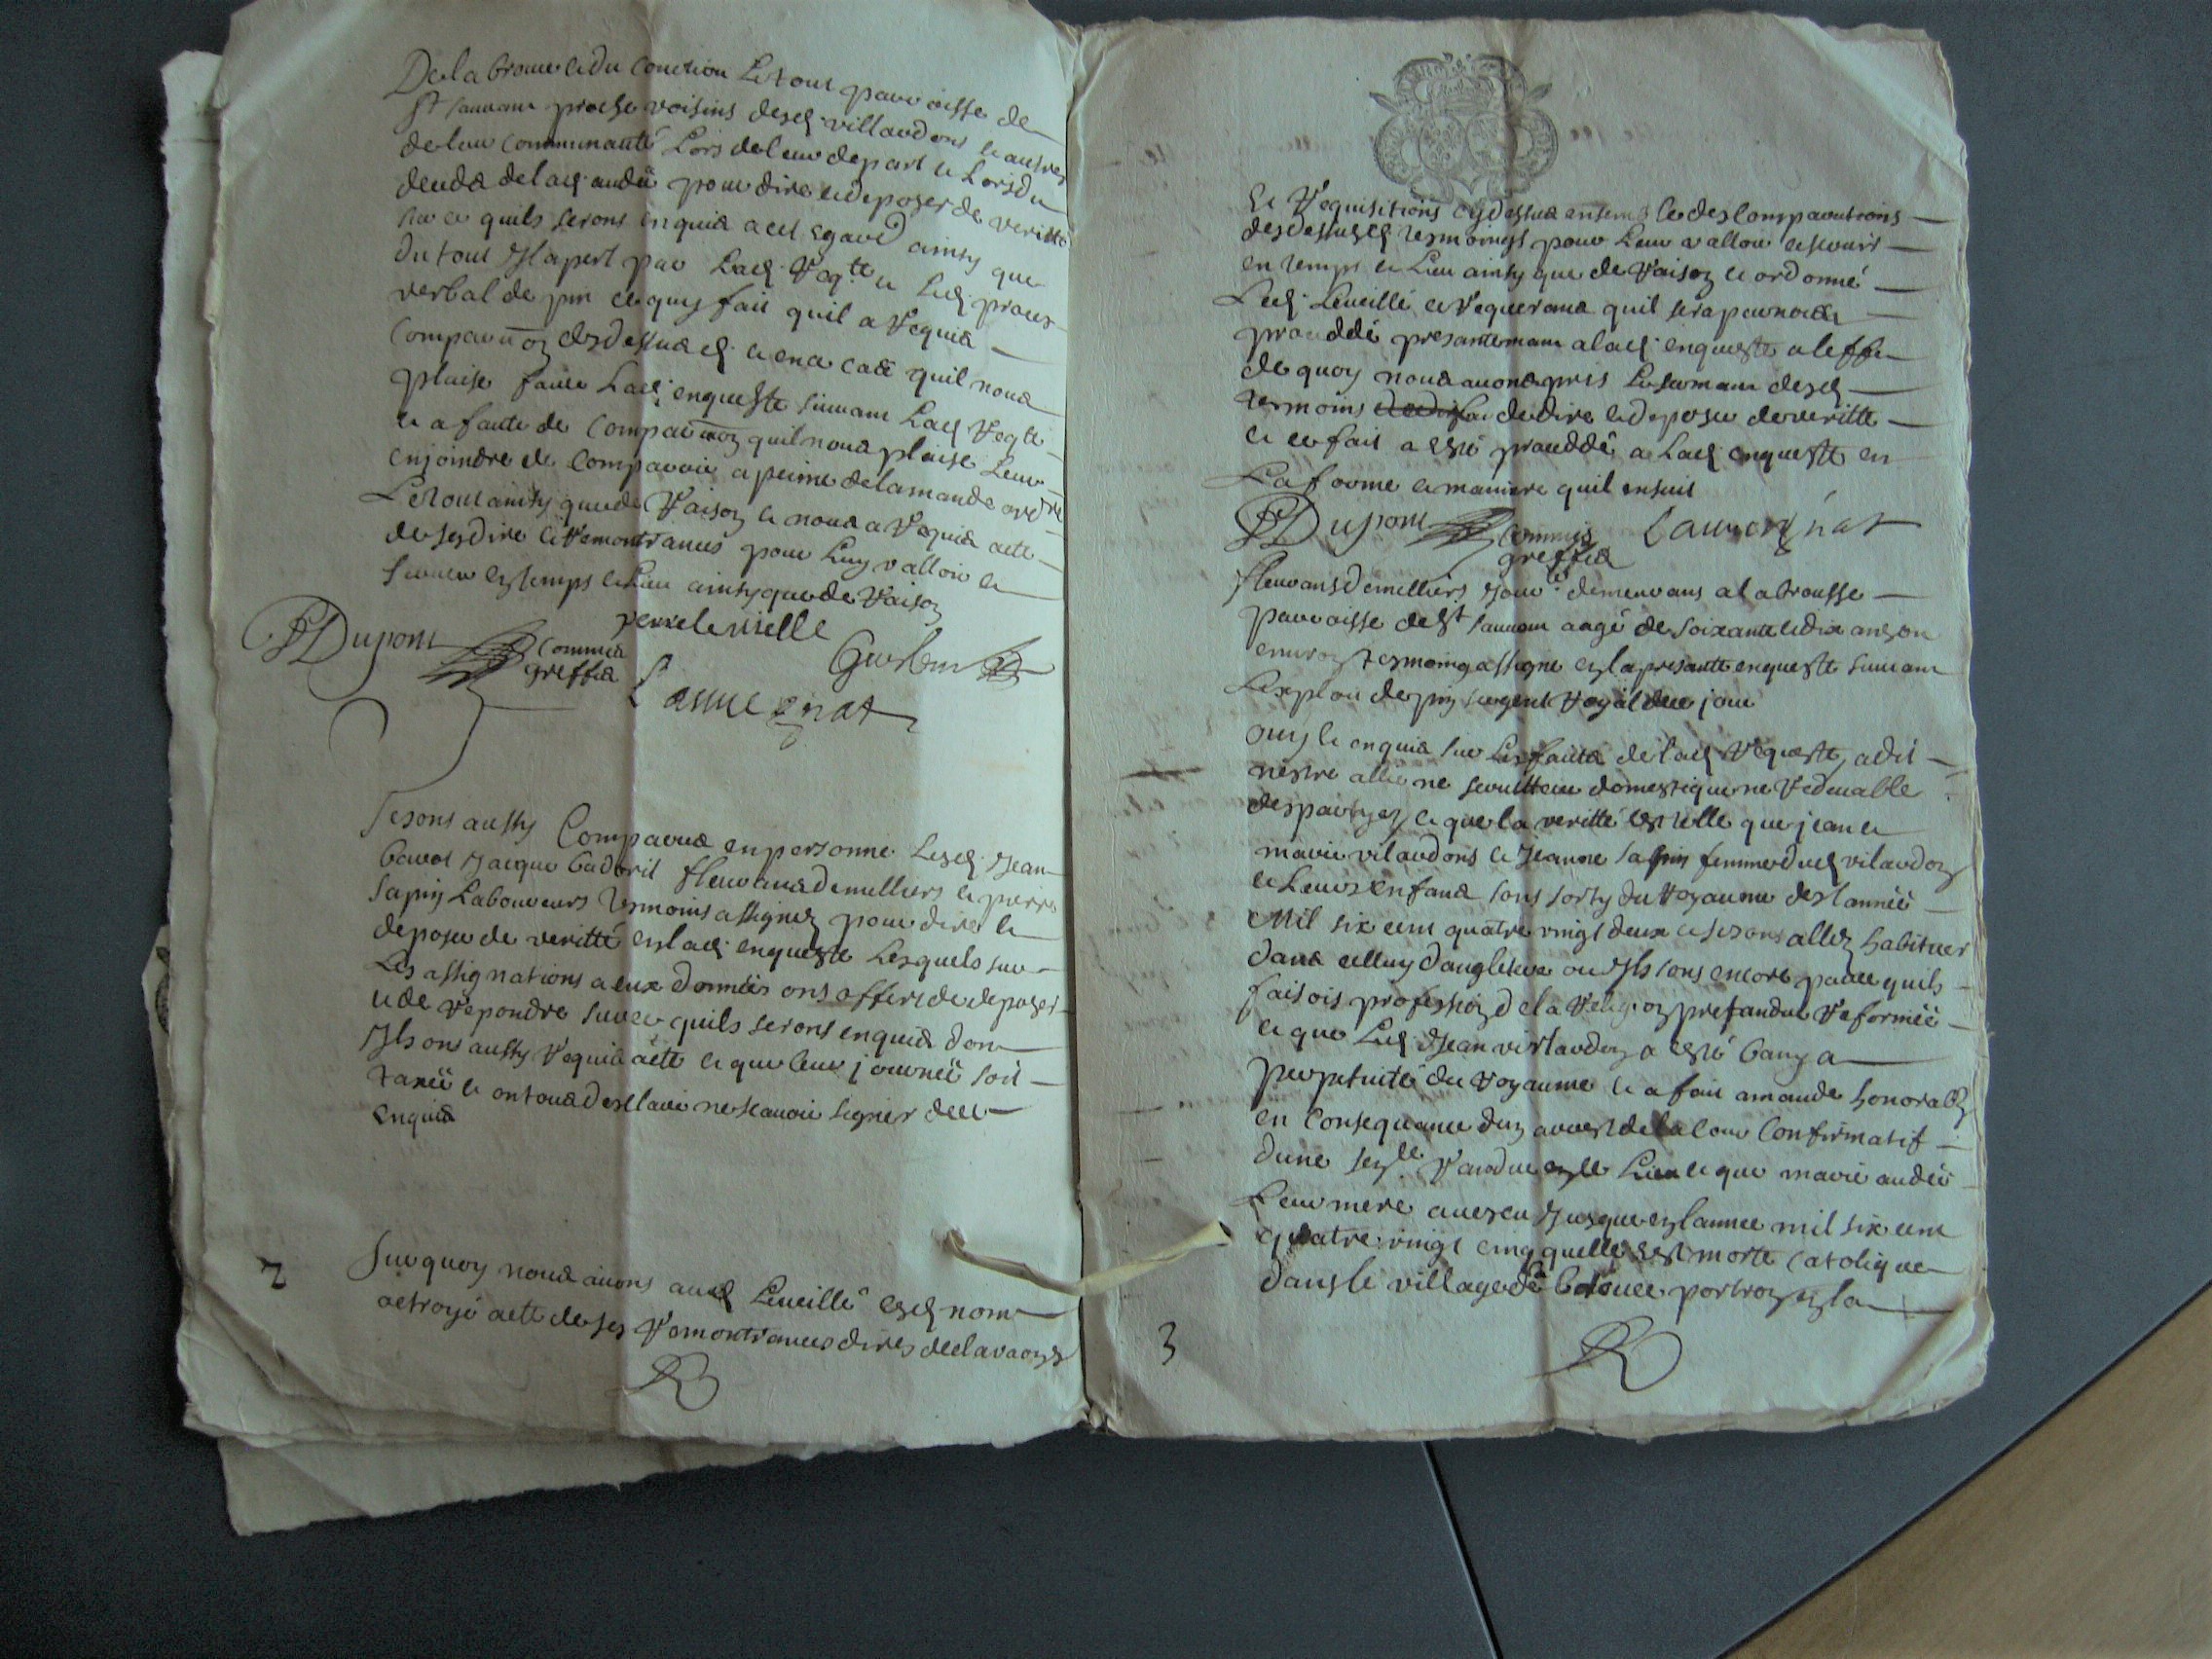 De la brousse et du Le tout parroisse de
St Sauvam proche voisins desd villaudons et autres
de leur communauté Lors de leur depart et Lors du
deceda de lad audée pour dire et deposer de veritté
sur ce quils seront enquis a cet egard ainsy que
du tout Il apert par Lad Reqte et Led proces
verbal de pin ce quy fait quil a requis
comparution desdessusd et en ce cas quil nous
plaise faire Lad enqueste suivant Lad Reqte
et a faute de comparution quil nous plaise Leur
enjoindre de comparoir a peine de lamande ordre
Le tout ainsy que de raison et nous a requis acte
de ses dire et remontrances pour Luy valloir et
servir en temps et Lieu ainsy que de raison
pierre leveille
PDupont commis
greffié
Sesont aussy Comparus en personne Lesd Jean
Jacque fleurans demelliers et pierre
Sapin Laboureurs tesmoins assignez pour dire et
deposer de veritté en lad enqueste Lesquels sur
Les assignations a eux données ont offert de deposer
et de repondre sur ce quils seront enquis dont
Ils ont aussy requis acte et que leur journée soit
taxée et ont tous desclaré ne scavoir signer de ce
enquis
2
Sur quoy nous avons aud Leveillé esd nom
octroyé acte de ses remontrances dires declaraons
Et requisitions cy dessus ensemble des comparutions
desdessusd tesmoings pour Leur valloir et servir
en temps et Lieu ainsy que de raison et ordonné
Led Leveillé ce requerant quil sera par nous
proceddé presantemant a lad enqueste a leffet
de quoy nous avons pris Le sermant desd
tesmoins de dire et deposer de veritté
et ce fait a esté proceddé a Lad enqueste en
La forme et maniere quil ensuit
PDupont commis
greffié
fleurans demelliers demeurans a la brousse
parroisse de St Sauvam aagé de soixante et dix ans ou
environ tesmoing assigné en la presante enqueste suivant
Lexploit de pin sergent royal de ce jour
Ouy et enquis sur Les faits de lad requeste, a dit
nestre allié ne serviteur domestique ne redevable
des partyes, et que la veritté est telle que jean et
marie vilaudons et Jeanne Sapin femme dud vilaudon
et Leurs enfans sont sorty du royaume des lannée
Mil six cent quatre vingt deux et se sont allez habituer
dans celluy dangleterre ou Ils sont encore parce quils
faisois profession de la religion pretandue reformée
et que Led Jean virlaudon a esté bany a
perpetuité du royaume et a fait amande honorable
en consequance dun arrest de la cour confirmatif
dune sence randue en ce Lieu et que marie audée
Leur mere a vescu Jusque en lannee mil six cent
quatre vingt cinq quelle est morte catolique
dans le village de en la
3